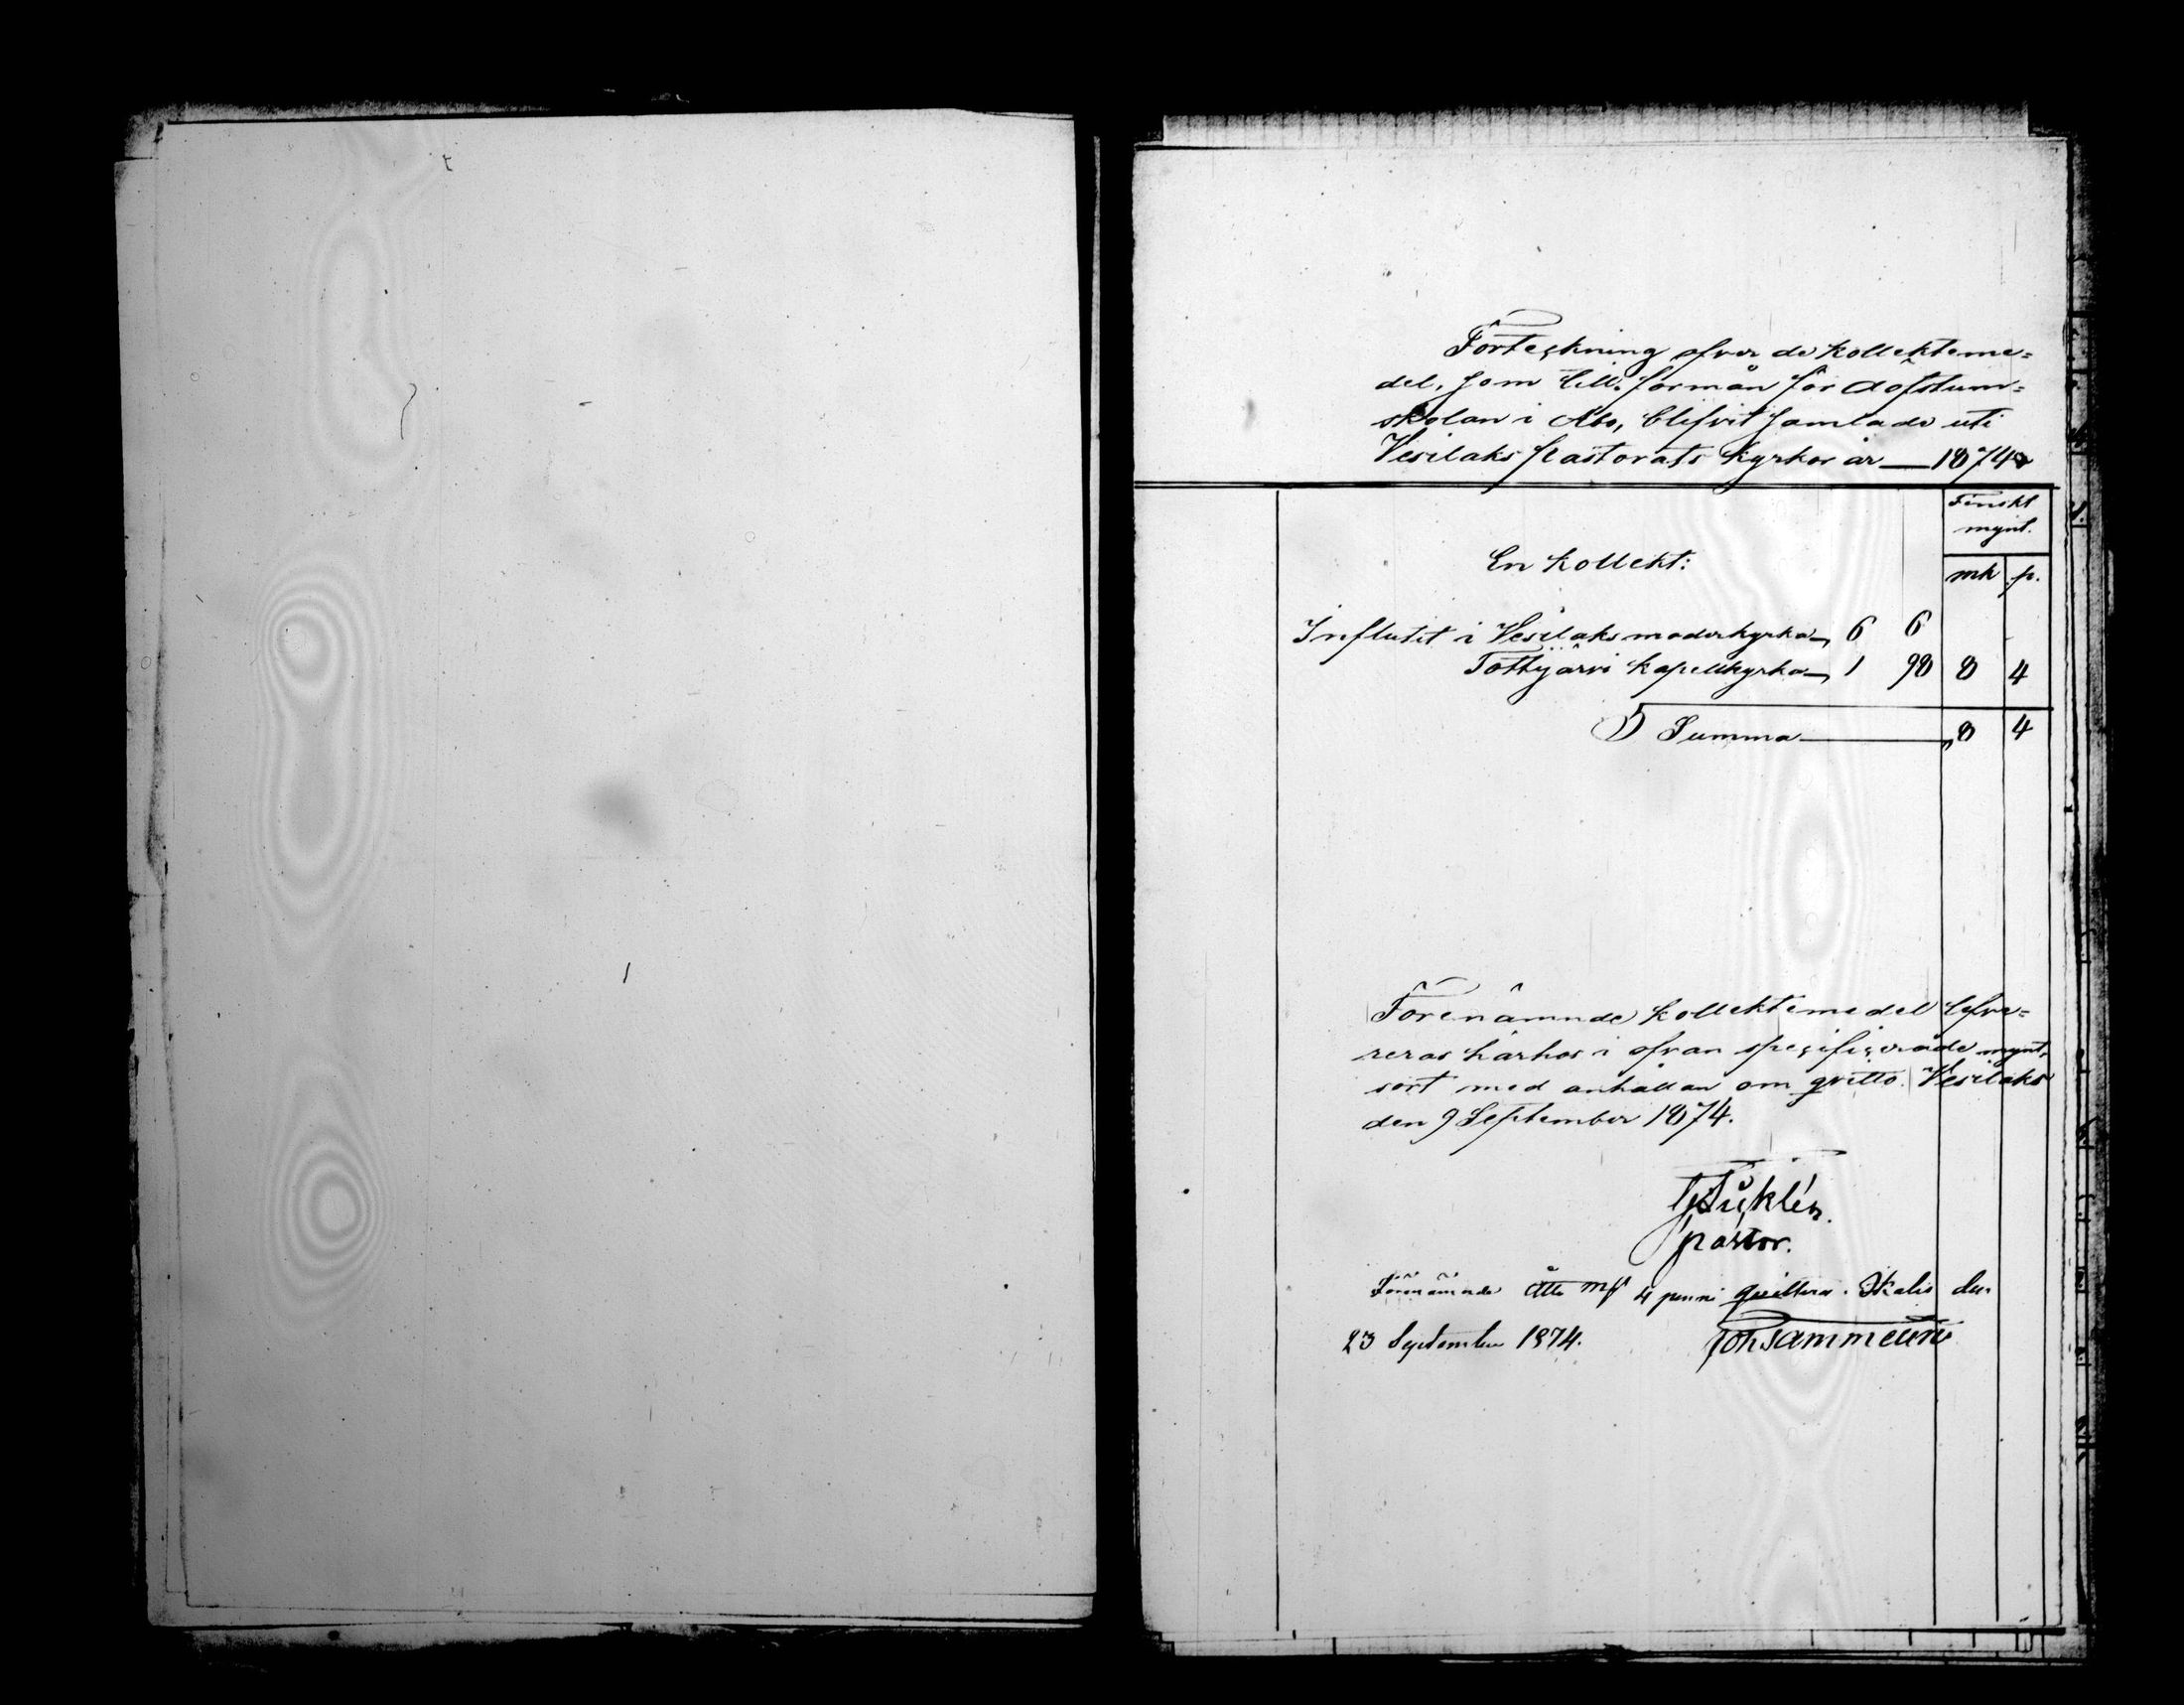 Förteckning öfver de kollekteme=
del, som till förmån för döfstum=
skolan i Åbo, blifvit samlade uti
Vesilaks Pastorats kyrkor år — 1874
Finskt
mynt.
En kollekt:
mk p.
Influtit i Vesilaks moderkyrka 6 6
Tottijärvi kapellkyrka 1 98 8 4
Summa 8 4
Förenämnde kollektemedel lefve=
reras härhos i ofvan specificerade mynt,
sort med anhållan om qvitto. Vesilaks
den 9 September 1874.
pastor.
Förenämnde åtta mk 4 penni qvitteras. Ikalis den
23 September 1874.